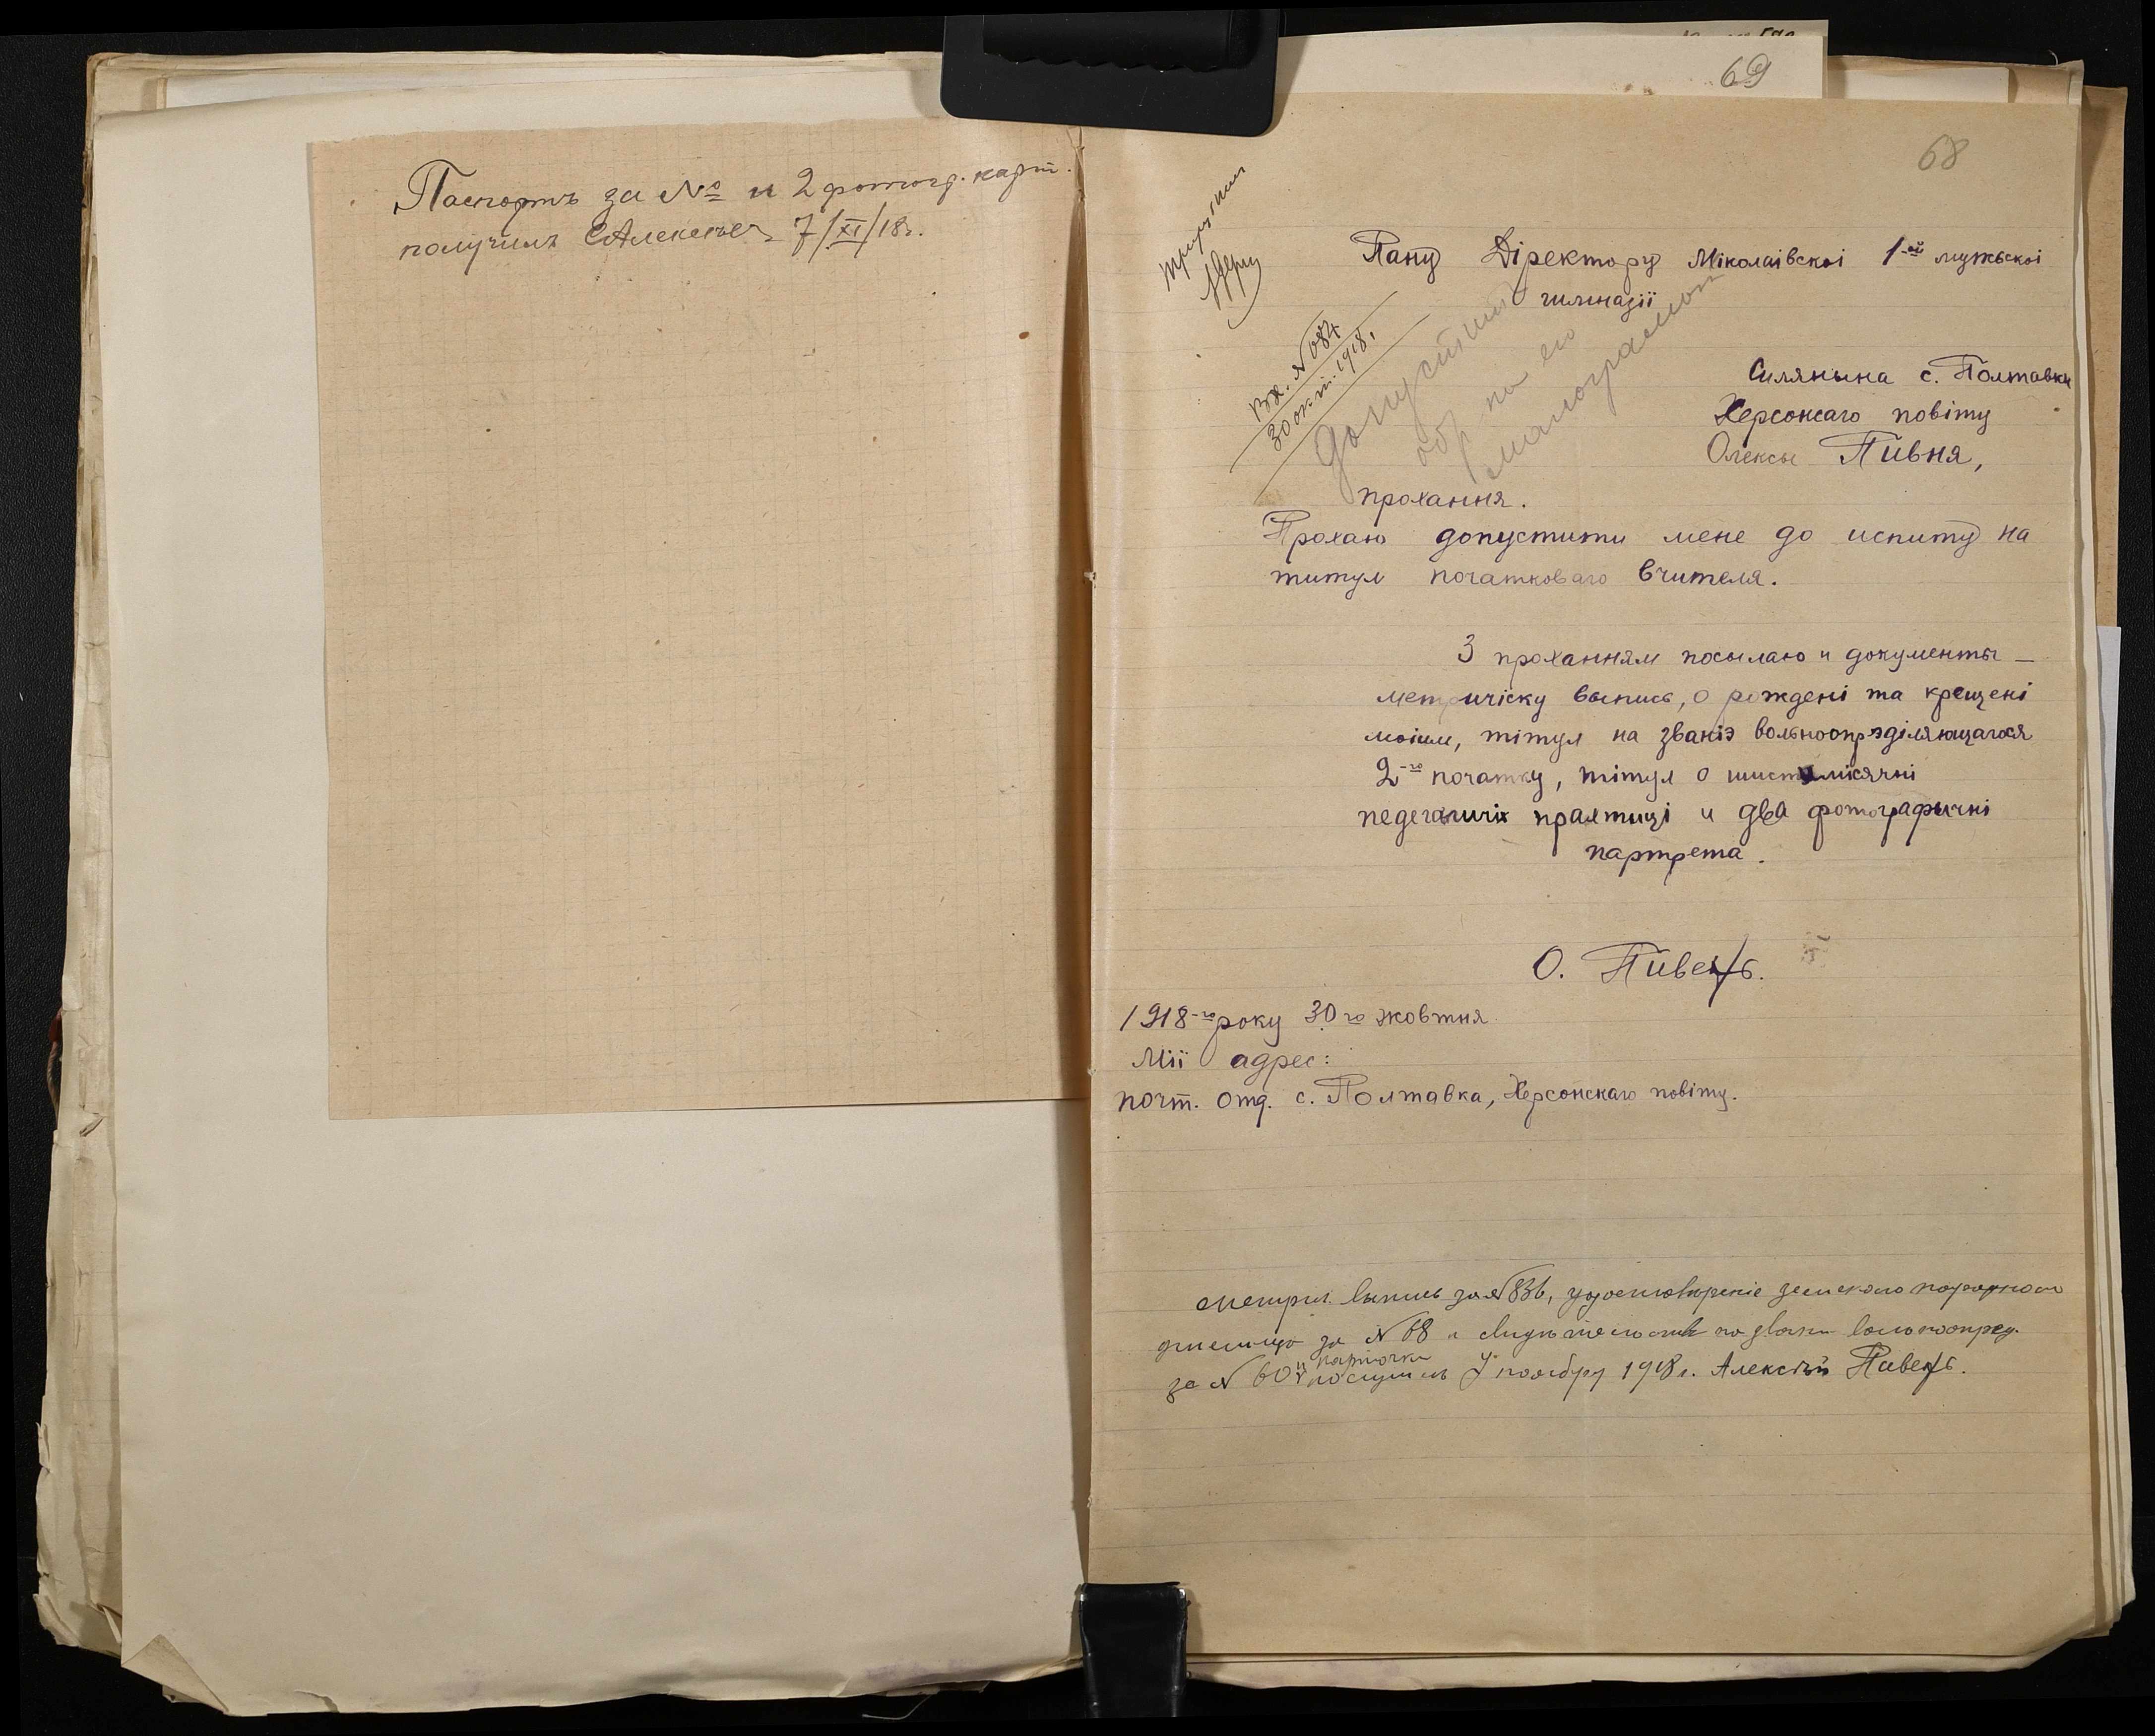 Паспортъ за № и 2 фотогр. карт.
получилъ САлексѣев 7/XI/18г.
69
68
Вх. № 684
30 окт. 1918 г.
допустить
Пану Діректору Міколаівскоі 1-ой мужьскоі
гимназіі
Силянына с. Полтавки
Херсонсаго повіту
Олексы Пивня,
прохання.
Прохаю допустити мене до испиту на
титул початковаго вчителя.
З проханням посылаю и документы —
метричіску выпись, о рождені та крещені
моіим, тітул на званіэ вольноопрэділяющагося
2-го початку, тітул о шистимісячні
педегагичіх практиці и два фотографычні
партрета.
О. Пивень.
1918-го року 30го жовтня
Міі адрес:
почт. отд. с. Полтавка, Херсонскаго повіту.
Метрич. выпись за № 836, удостовѣреніе земскаго народнаго
училища за № 68 и свидѣтельство вольноопред.
за № 60 и карточки получилъ 7 ноября 1918 г. Алексѣй Пивень.